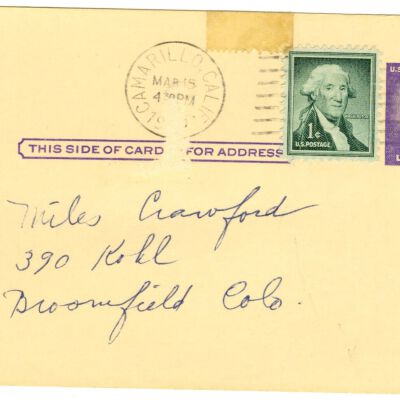 CAMARILLO, CALIF.
MAR 15
4 30 PM
1¢
U.S. POSTAGE
U.S.
THIS SIDE OF CARD FOR ADDRESS
Miles Crawford
390 Kohl
Broomfield Colo.